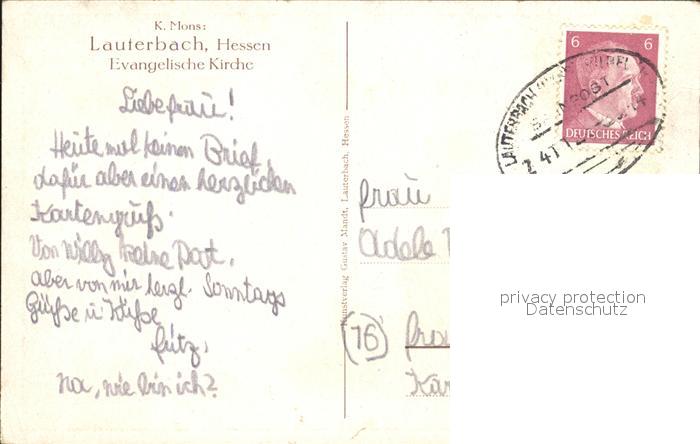 K. Mons:
Lauterbach, Hessen
Evangelische Kirche
Liebe Frau!
Heute mal keinen Brief,
dafür aber einen herzlichen
Kartengruß.
Von Willy keine Post,
aber von mir herzl. Sonntags
Grüße u. Küße
Fritz.
Na, wie bin ich?
Kunstverlag Gustav Mandt, Lauterbach, Hessen
6 6
DEUTSCHES REICH
LAUTERBACH
BAHNPOST
Z 411
Frau
Adele
(16)
privacy protection
Datenschutz